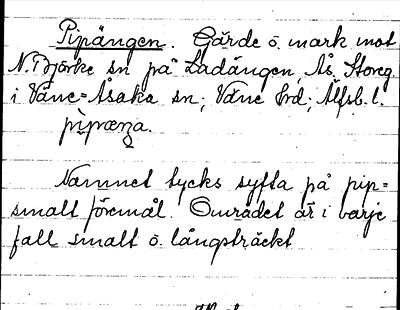 Pipängen. Gärde o. mark mot
N. Björke sn på Ladängen, Ås, Storeg.
i Väne-Åsaka sn; Väne hd; Älfsb. l.
pìpæŋa.
Namnet tycks syfta på pip=
smalt föremål. Området är i varje
fall smalt o. långsträckt